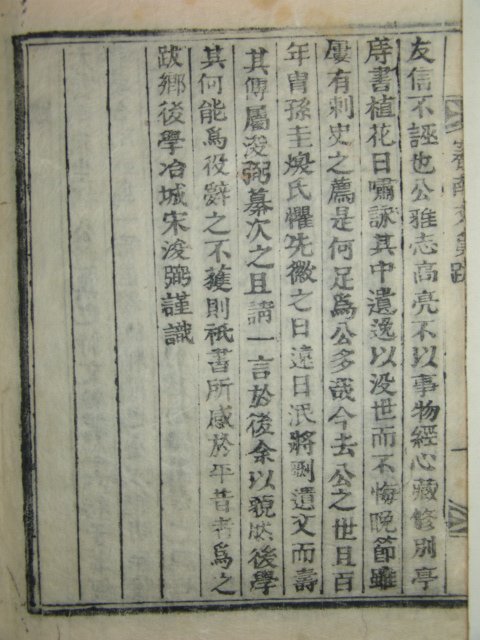 友信不誣也公雅志高亮不以事物經心藏修別亭
庤書植花日嘯詠其中遺逸以没世而不悔晩節雖
屢有刺史之薦是何足爲公多哉今去公之世且百
年冑孫圭煥氏懼先徽之日遠日泯將剞遺文而壽
其傳屬浚弼纂次之且請一言於後余以藐然後學
其何能爲役辭之不獲則祇書所感於平昔者爲之
跋鄕後學冶城宋浚弼謹識
南文集跋
一